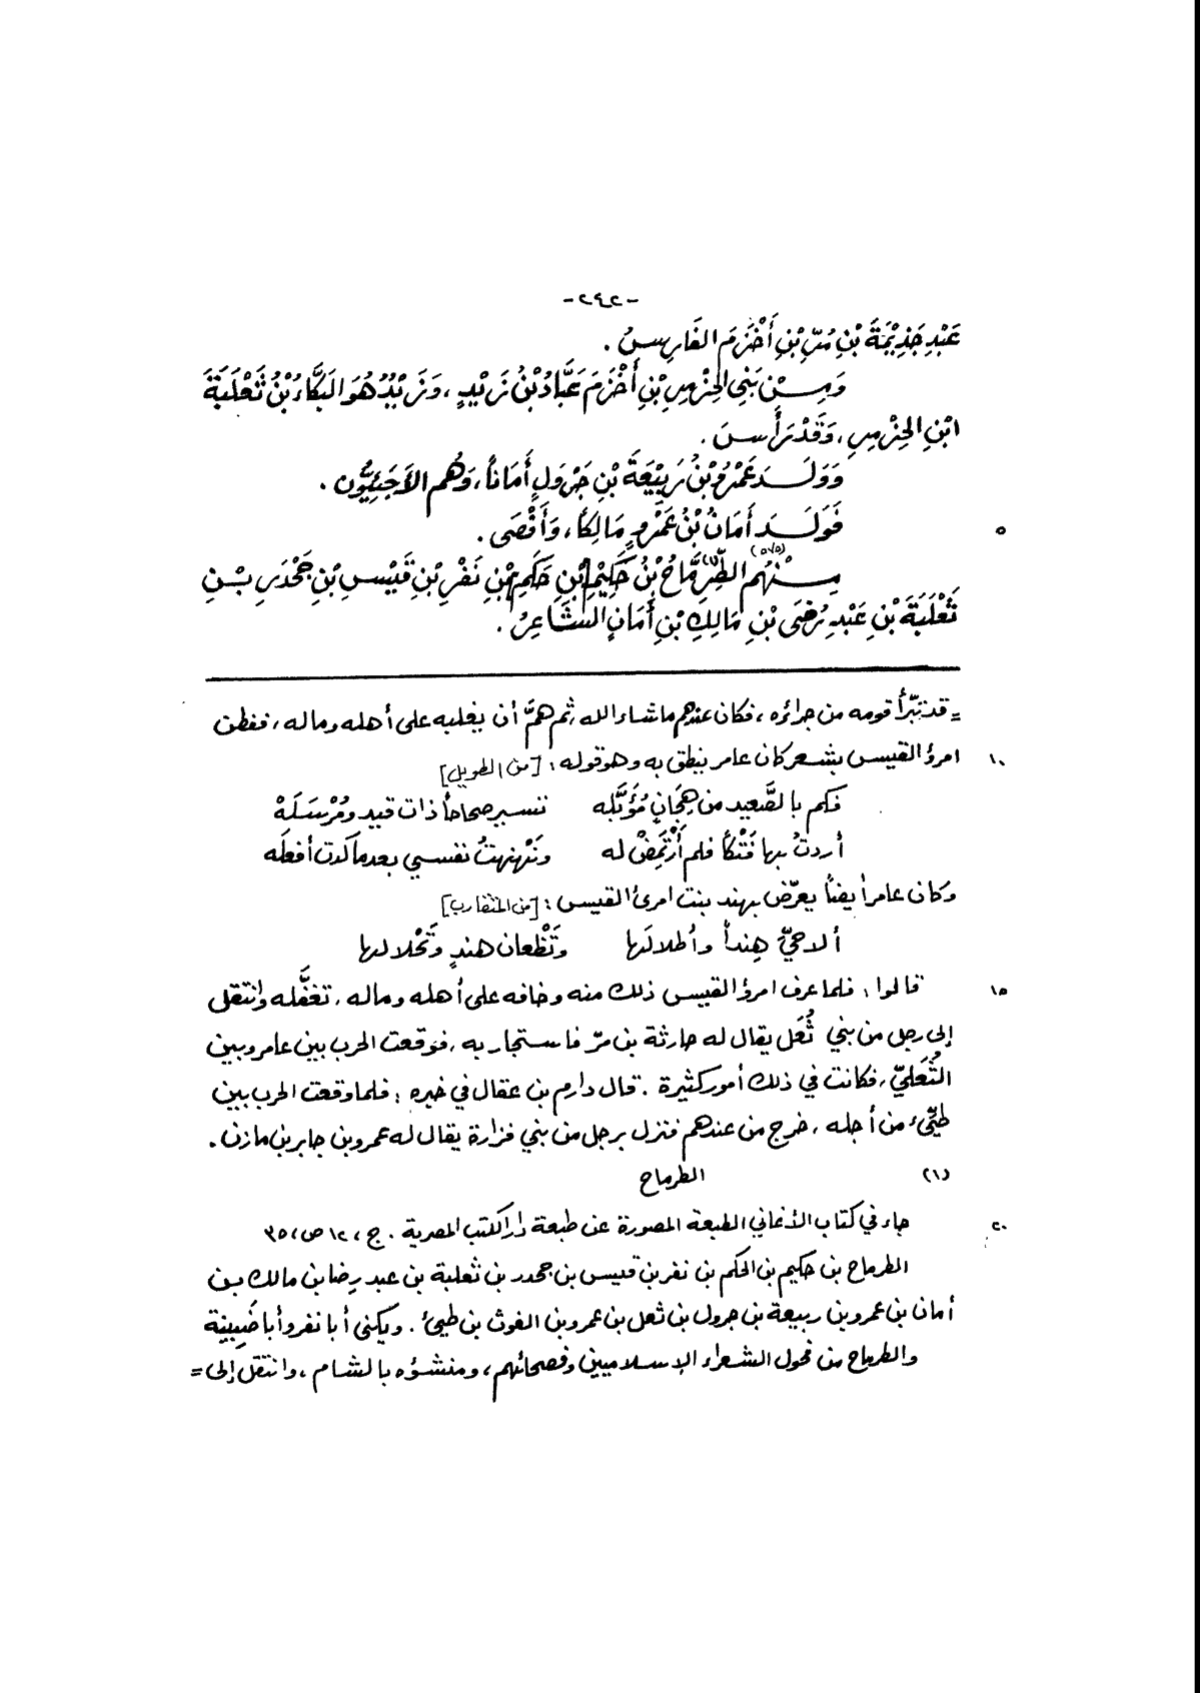 -٢٤٢-
عَبْدِ جَذِيْمَةَ بْنِ مُرِّ بْنِ أَخْزَمَ الفَارِسُ .
وَمِنْ بَنِي الحِزْمِرِ بْنِ أَخْزَمَ عَبَّادُ بْنُ زَيْدٍ ، وَزَيْدٌ هُوَ البَكَّاءُ بْنُ ثَعْلَبَةَ
ابْنِ الحِزْمِرِ ، وَقَدْ رَأَسَ .
وَوَلَدَ عَمْرُو بْنُ رَبِيْعَةَ بْنِ جَرْوَلٍ أَمَاناً ، وَهُم الأَجَئِيُّون .
فَوَلَدَ أَمَانُ بْنُ عَمْرٍو مَالِكاً ، وَأَقْصَى . ٥
مِنْهُم (٥٧٥) الطِّرِمَّاحُ (١) بْنُ حَكِيْمِ بْنِ حَكَمِ بْنِ نَفْرِ بْنِ قَيْسِ بْنِ جَحْدَرِ بْنِ
ثَعْلَبَةَ بْنِ عَبْدِ رُضَى بْنِ مَالِكِ بْنِ أَمَانٍ الشَّاعِرُ .
= قد تبّرأ قومه من جرائره ، فكان عندهم ماشاء الله ، ثم همَّ أن يغلبه على أهله وماله ، ففطن
امرؤ القيس بشعر كان عامر ينطق به وهو قوله : [من الطويل] ١٠
فكم بالصَّعيد من هِجَانٍ مُؤَبَّله تسير صحاحاً ذات قيد ومُرْسَلَهْ
أردتُ بها فَتْكاً فلم أَرْتَمِضْ له ونَهْنهتُ نفسي بعد ما كدت أفعلَه
وكان عامر أيضاً يعرّض بهند بنت امرئ القيس : [من المتقارب]
ألا حيّ هِنداً وأطلالَها وتَظْعان هندٍ وتَحْلالها
قالوا : فلما عرف امرؤ القيس ذلك منه وخافه على أهله وماله ، تغفَّله وانتقل ١٥
إلى رجل من بني ثُعَل يقال له حارثة بن مرّ فاستجار به ، فوقعت الحرب بين عامر وبين
الثُعَليّ ، فكانت في ذلك أمور كثيرة . قال دارم بن عقال في خبره : فلما وقعت الحرب بين
طيّئ من أجله ، خرج من عندهم فنزل برجل من بني فزارة يقال له عمرو بن جابر بن مازن .
(١) الطرماح
جاء في كتاب الأغاني الطبعة المصورة عن طبعة دار الكتب المصرية . ج ، ١٢ ص ، ٣٥ ٢٠
الطرماح بن حكيم بن الحكم بن نفر بن قيس بن جحدر بن ثعلبة بن عبد رِضا بن مالك بن
أمان بن عمرو بن ربيعة بن جرول بن ثعل بن عمرو بن الغوث بن طيئ . ويكنى أبا نفر وأبا ضَبِينَة
والطرماح من فحول الشعراء الإسلاميين وفصحائهم ، ومنشؤه بالشام ، وانتقل إلى =